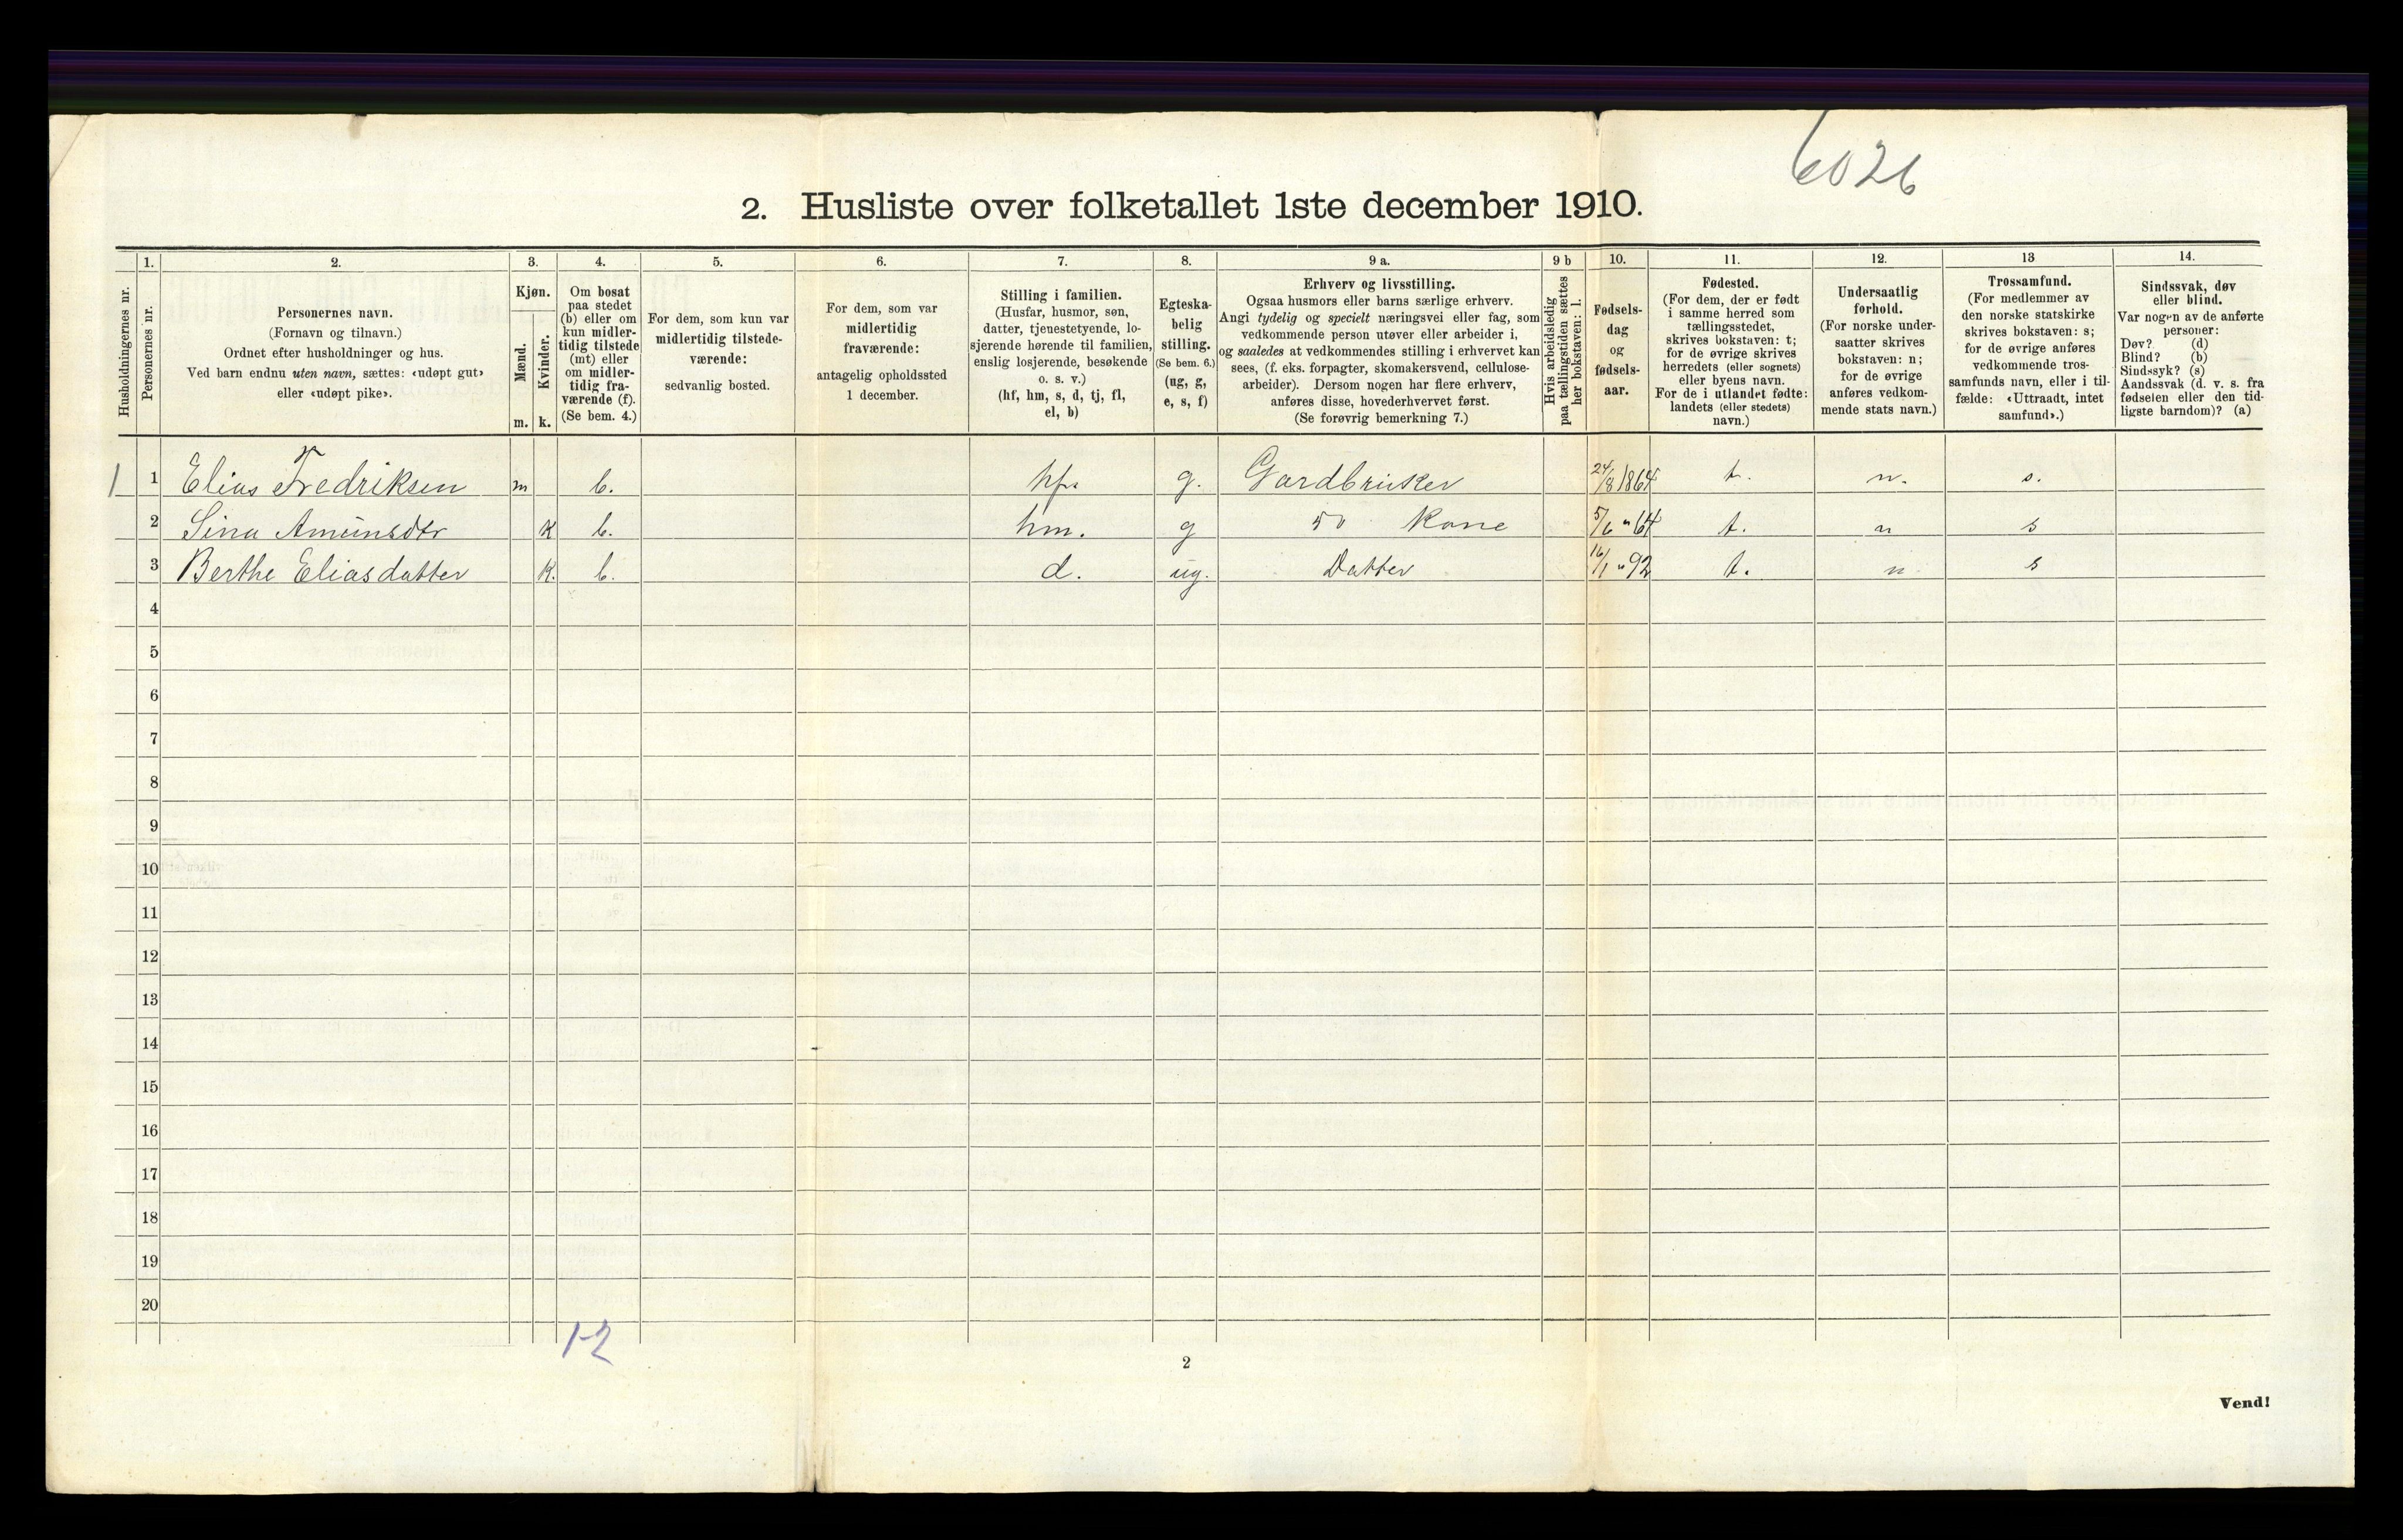 6026
2. Husliste over folketallet 1ste december 1910.
1. 2. 3. 4. 5. 6. 7. 8. 9 a. 9 b 10. 11. 12. 13 14.
Husholdningernes nr.
Personernes nr.
Personernes navn.
(Fornavn og tilnavn.)
Ordnet efter husholdninger og hus.
Ved barn endnu uten navn, sættes: «udøpt gut»
eller «udøpt pike».
Kjøn.
Mænd.
Kvinder.
m. k.
Om bosat
paa stedet
(b) eller om
kun midler-
tidig tilstede
(mt) eller
om midler-
tidig fra-
værende (f).
(Se bem. 4.)
For dem, som kun var
midlertidig tilstede-
værende:
sedvanlig bosted.
For dem, som var
midlertidig
fraværende:
antagelig opholdssted
1 december.
Stilling i familien.
(Husfar, husmor, søn,
datter, tjenestetyende, lo-
sjerende hørende til familien,
enslig losjerende, besøkende
o. s. v.)
(hf, hm, s, d, tj, fl,
el, b)
Egteska-
belig
stilling.
(Se bem. 6.)
(ug, g,
e, s, f)
Erhverv og livsstilling.
Ogsaa husmors eller barns særlige erhverv.
Angi tydelig og specielt næringsvei eller fag, som
vedkommende person utøver eller arbeider i,
og saaledes at vedkommendes stilling i erhvervet kan
sees, (f. eks. forpagter, skomakersvend, cellulose-
arbeider). Dersom nogen har flere erhverv,
anføres disse, hovederhvervet først.
(Se forøvrig bemerkning 7.)
Hvis arbeidsledig
paa tællingstiden sættes
her bokstaven: l.
Fødsels-
dag
og
fødsels-
aar.
Fødested.
(For dem, der er født
i samme herred som
tællingsstedet,
skrives bokstaven: t;
for de øvrige skrives
herredets (eller sognets)
eller byens navn.
For de i utlandet fødte:
landets (eller stedets)
navn.)
Undersaatlig
forhold.
(For norske under-
saatter skrives
bokstaven: n;
for de øvrige
anføres vedkom-
mende stats navn.)
Trossamfund.
(For medlemmer av
den norske statskirke
skrives bokstaven: s;
for de øvrige anføres
vedkommende tros-
samfunds navn, eller i til-
fælde: «Uttraadt, intet
samfund».)
Sindssvak, døv
eller blind.
Var nogen av de anførte
personer:
Døv? (d)
Blind? (b)
Sindssyk? (s)
Aandssvak (d. v. s. fra
fødselen eller den tid-
ligste barndom)? (a)
1 1 Elias Fredriksen m b. hf. g. Gardbruker 24/8 1864 t. n. s.
2 Sina Amunsdtr k b. hm. g 50 Kone 5/6 " 64 t. n s
3 Berthe Eliasdatter k. b. d. ug. Datter 16/1 " 92 t. n s
4
5
6
7
8
9
10
11
12
13
14
15
16
17
18
19
20
1-2
2
Vend!